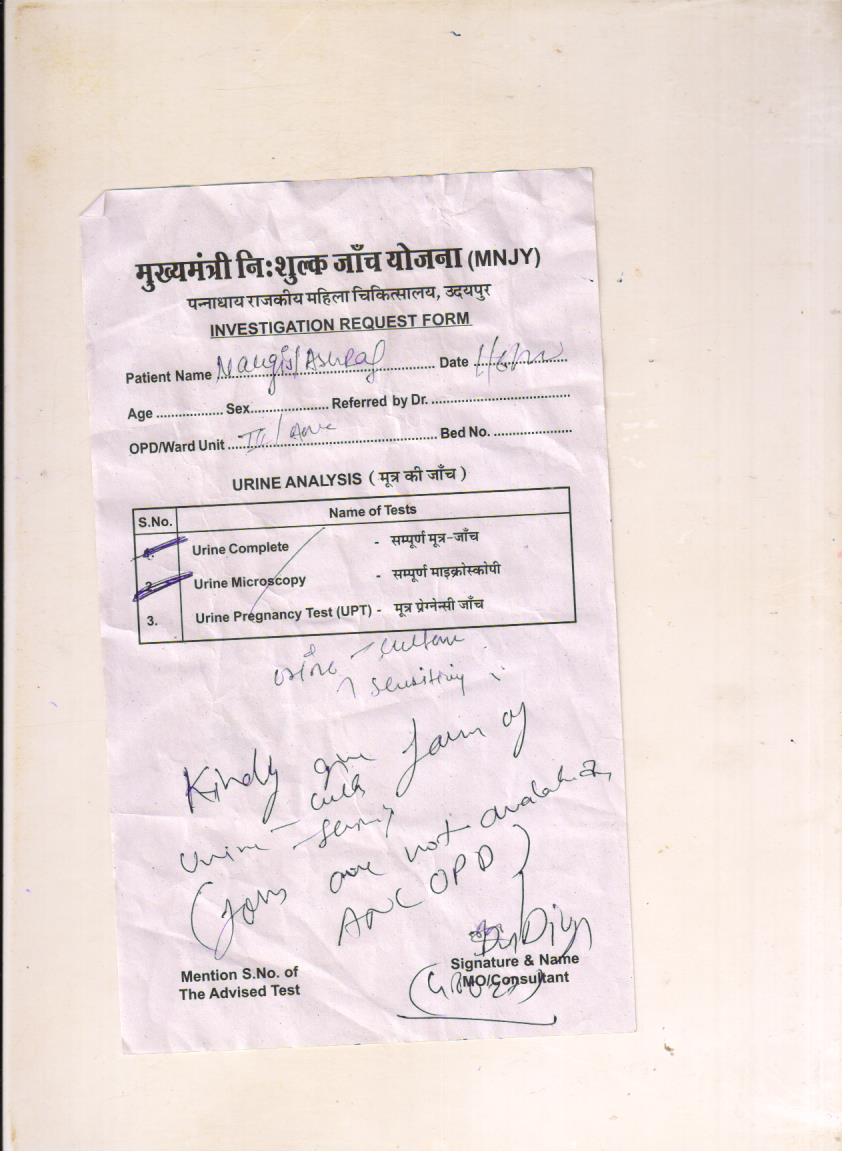 मुख्यमंत्री नि:शुल्क जाँच योजना (MNJY)
पन्नाधाय राजकीय महिला चिकित्सालय, उदयपुर
INVESTIGATION REQUEST FORM
Patient Name Nargis/Ashraf Date
Age Sex Referred by Dr.
OPD/Ward Unit Bed No.
URINE ANALYSIS ( मूत्र की जाँच )
S.No. Name of Tests
1. Urine Complete - सम्पूर्ण मूत्र-जाँच
2. Urine Microscopy - सम्पूर्ण माइक्रोस्कोपी
3. Urine Pregnancy Test (UPT) - मूत्र प्रेग्नेन्सी जाँच
urine - culture
sensitivity
Kindly give form of
Urine - cult
(forms are not available in
ANC OPD)
Dr Divya
Mention S.No. of Signature & Name
The Advised Test MO/Consultant